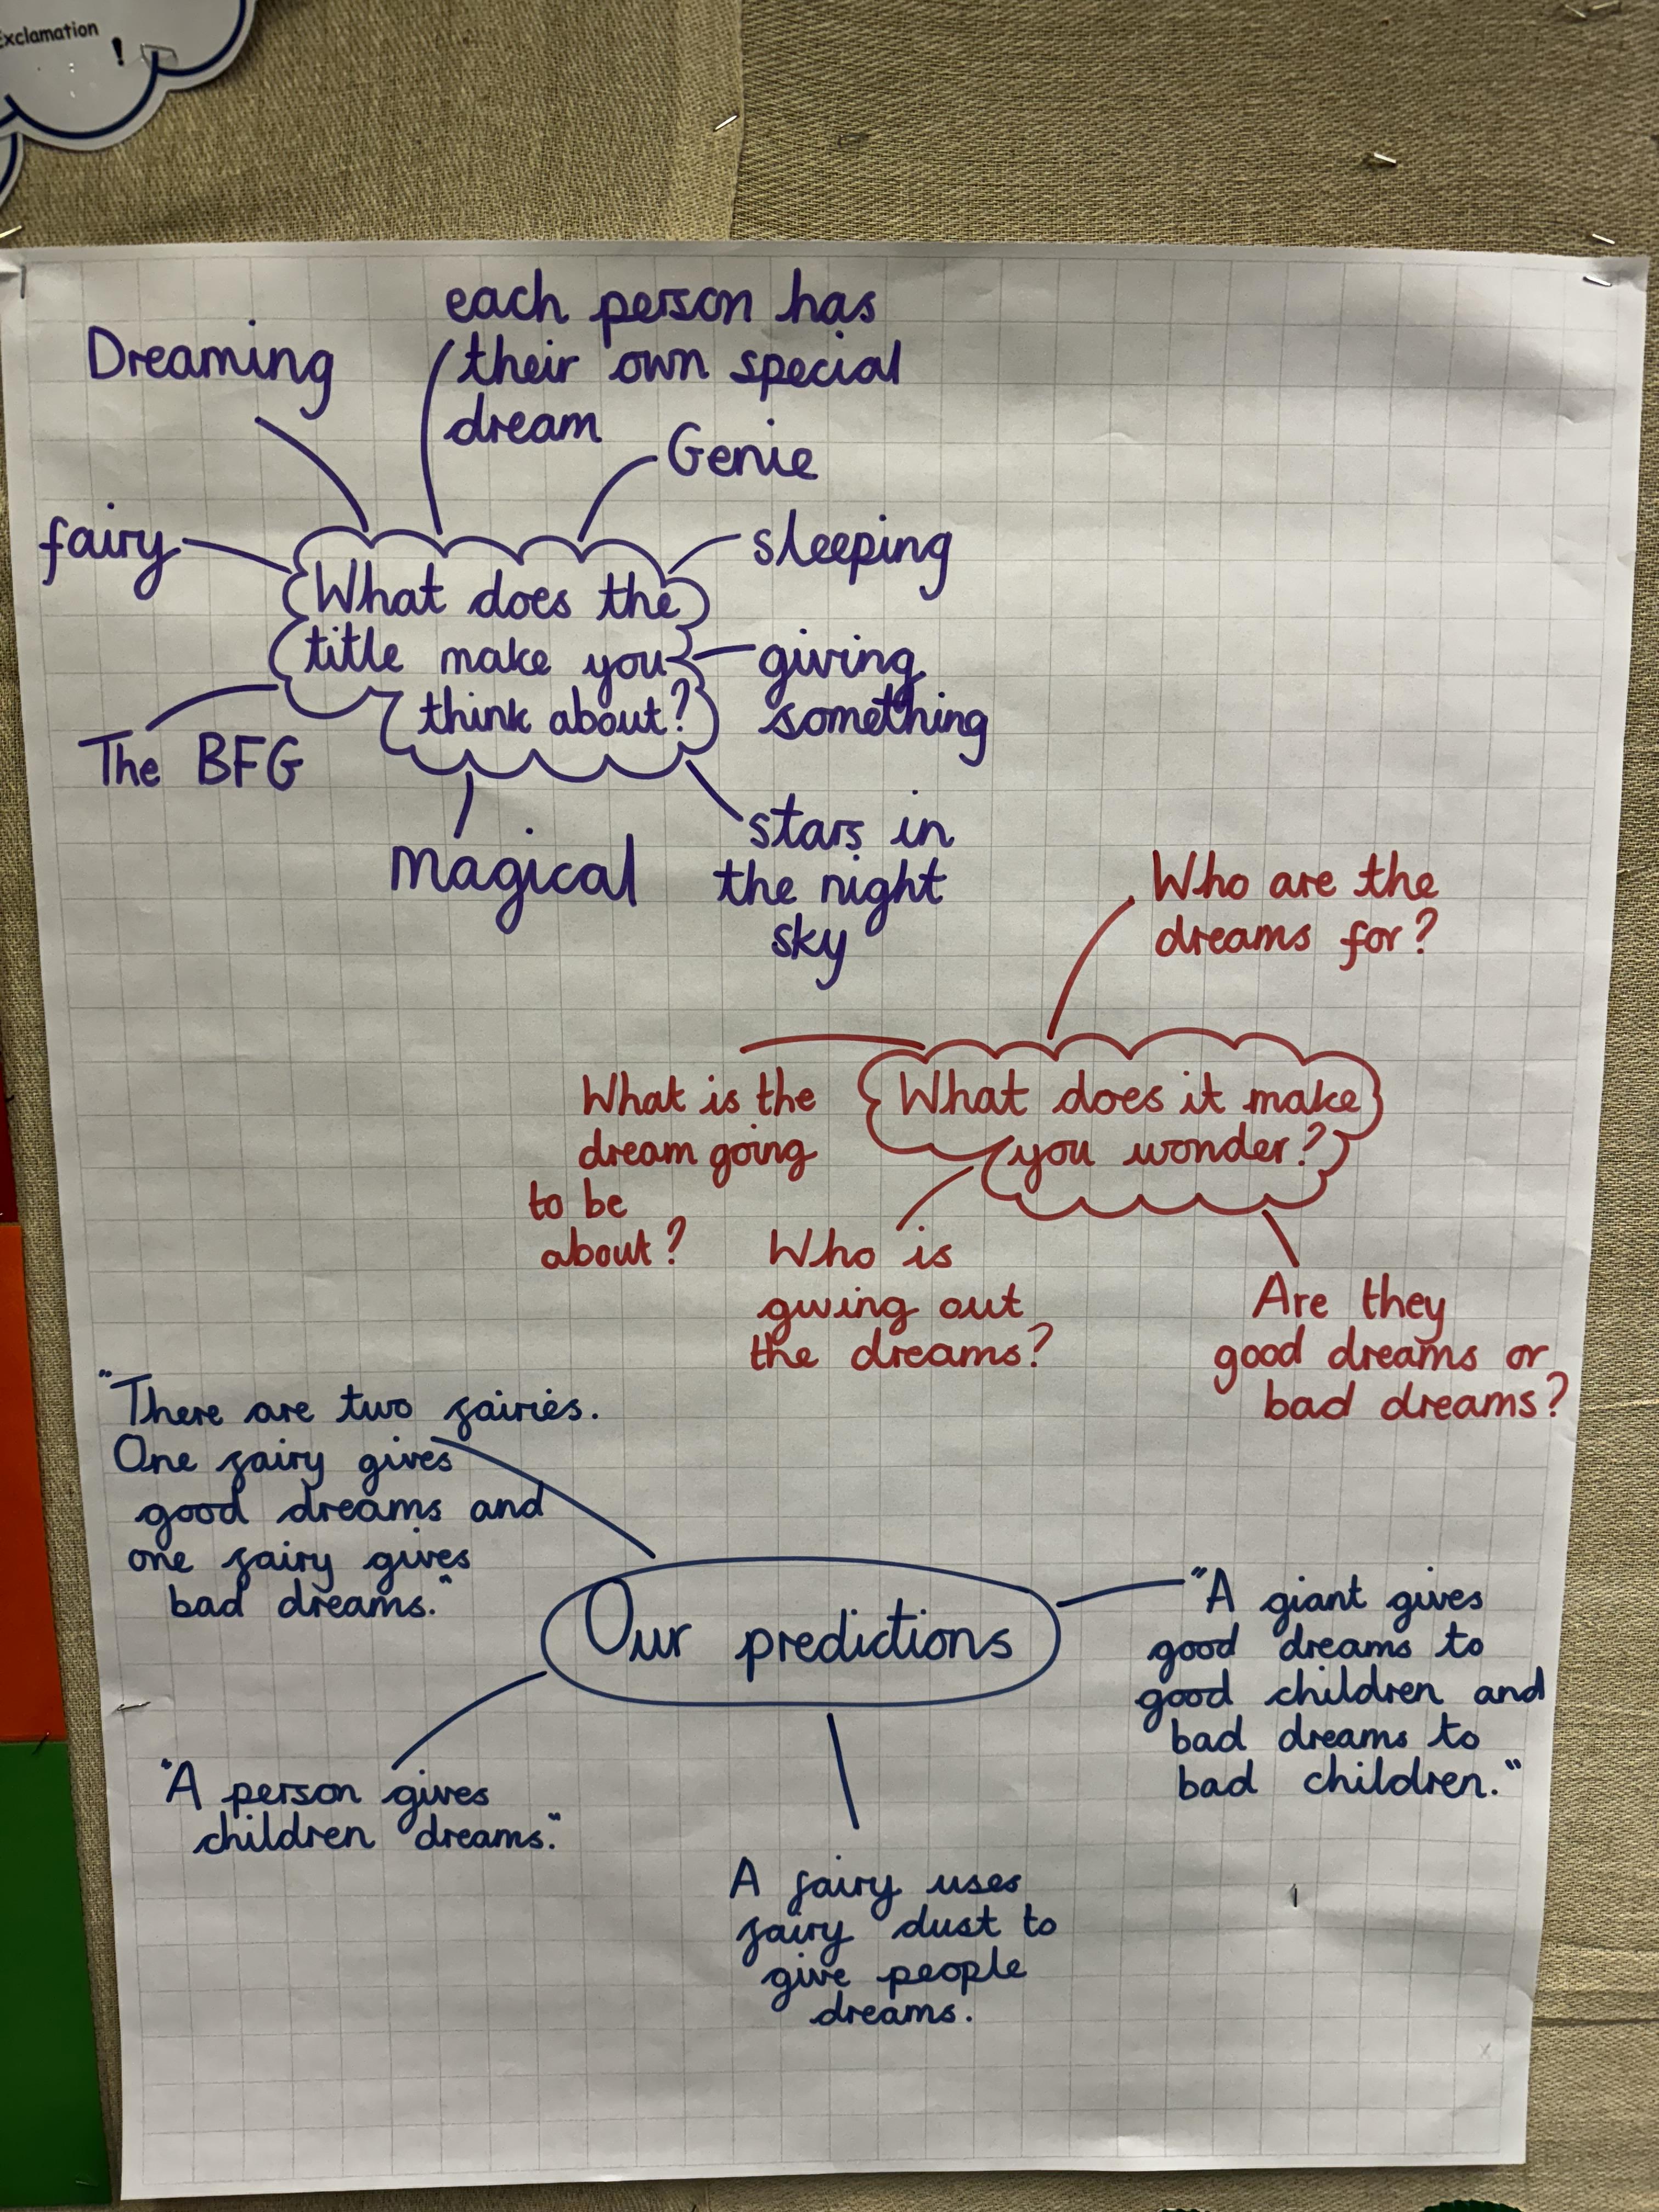 Exclamation
!
each person has
their own special
dream
Dreaming
Genie
fairy
sleeping
What does the
title make you
think about?
giving
something
The BFG
Magical
stars in
the night
sky
Who are the
dreams for?
What does it make
you wonder?
What is the
dream going
to be
about?
Who is
giving out
the dreams?
Are they
good dreams or
bad dreams?
"There are two fairies.
One fairy gives
good dreams and
one fairy gives
bad dreams."
Our predictions
"A giant gives
good dreams to
good children and
bad dreams to
bad children."
"A person gives
children dreams."
A fairy uses
fairy dust to
give people
dreams.